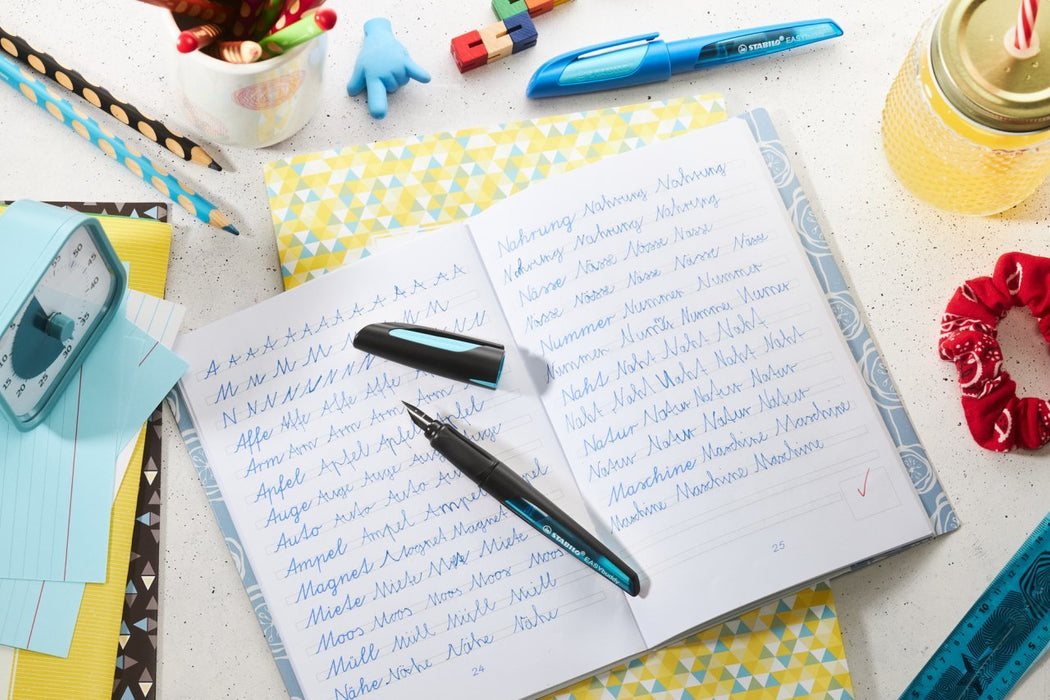 STABILO EASYbuddy
A A A A A A A A A A A A
M M M M M M M M
N N N N N N N N N N
Affe Affe Affe Affe
Arm Arm Arm Arm Arm
Apfel Apfel Apfel Apfel
Auge Auge Auge Auge Auge
Auto Auto Auto Auto
Ampel Ampel Ampel Ampel
Magnet Magnet Magnet
Miete Miete Miete
Moos Moos Moos Moos Moos
Müll Müll Müll Müll
Nähe Nähe Nähe Nähe
24
Nahrung Nahrung Nahrung
Nahrung Nahrung Nahrung
Nässe Nässe Nässe Nässe
Nässe Nässe Nässe Nässe Nässe
Nummer Nummer Nummer
Nummer Nummer Nummer Nummer
Naht Naht Naht Naht
Naht Naht Naht Naht Naht
Natur Natur Natur Natur
Natur Natur Natur Natur
Maschine Maschine Maschine
Maschine Maschine Maschine
25
STABILO EASYbuddy
50 45 40 30 25 20 15 10 5
10 9